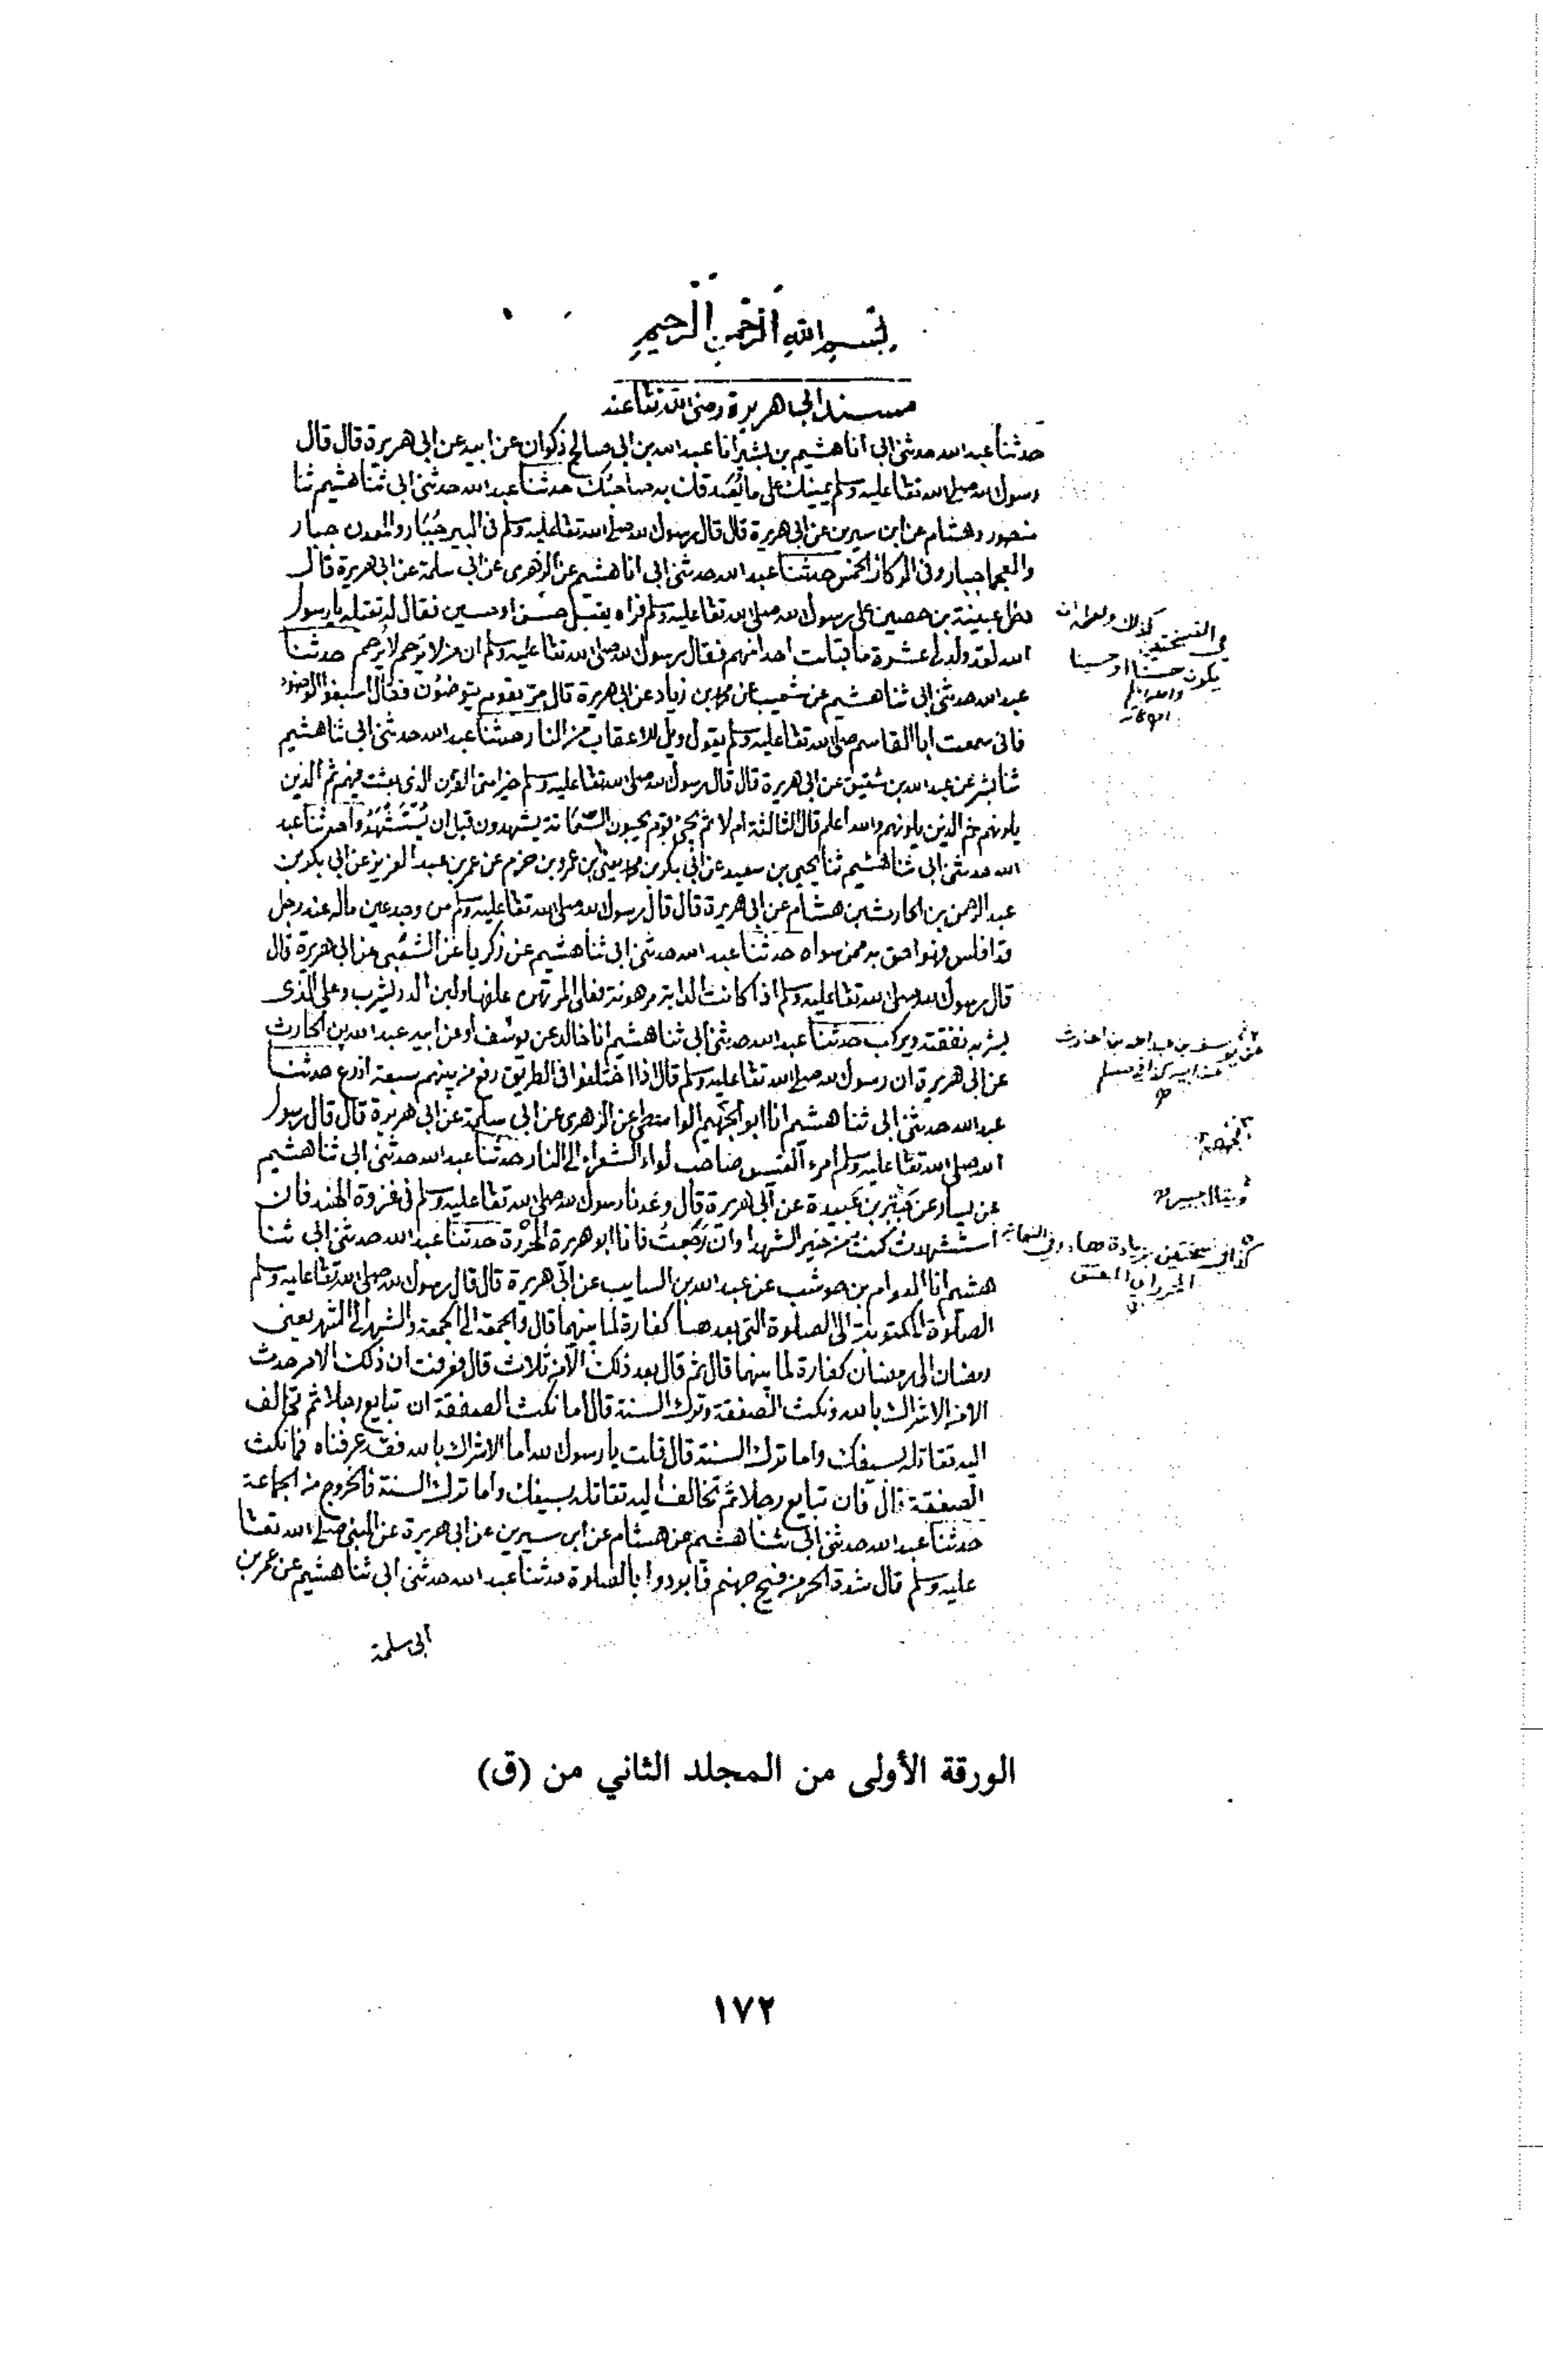 بسم الله الرحمن الرحيم
مسند ابى هريرة رضى الله تعا عنه
حدثنا عبد الله حدثنى ابى انا هشيم بن بشير انا عبد الله بن ابى صالح ذكوان عن ابيه عن ابى هريرة قال قال
رسول الله صلى الله تعا عليه وسلم يمينك على ما يصدقك به صاحبك حدثنا عبد الله حدثنى ابى ثنا هشيم ثنا
منصور وهشام عن ابن سيرين عن ابى هريرة قال قال رسول الله صلى الله تعا عليه وسلم فى البير جبار والمعدن جبار
والعجما جبار وفى الركاز الخمس حدثنا عبد الله حدثنى ابى انا هشيم عن الزهرى عن ابى سلمة عن ابى هريرة قال
دخل عيينة بن حصين على رسول الله صلى الله تعا عليه وسلم فراه يقبل حسن او حسين فقال له تقبله يا رسول
الله لقد ولد لى عشرة ما قبلت احدا منهم فقال رسول الله صلى الله تعا عليه وسلم ان من لا يرحم لا يرحم حدثنا
عبد الله حدثنى ابى ثنا هشيم عن شعيب عن محمد بن زياد عن ابى هريرة قال مر بقوم يتوضئون فقال اسبغوا الوضوء
فانى سمعت ابا القاسم صلى الله تعا عليه وسلم يقول ويل للاعقاب من النار حدثنا عبد الله حدثنى ابى ثنا هشيم
ثنا بشر عن عبد الله بن شقيق عن ابى هريرة قال قال رسول الله صلى الله تعا عليه وسلم خير امتى القرن الذى بعثت فيهم ثم الذين
يلونهم ثم الذين يلونهم والله اعلم قال الثالثة ام لا ثم يجئ قوم يحبون السمانة يشهدون قبل ان يستشهدوا حدثنا عبد
الله حدثنى ابى ثنا هشيم ثنا يحيى بن سعيد عن ابى بكر بن محمد يعنى ابن عمرو بن حزم عن عمر بن عبد العزيز عن ابى بكر بن
عبد الرحمن بن الحارث بن هشام عن ابى هريرة قال قال رسول الله صلى الله تعا عليه وسلم من وجد عين ماله عند رجل
قد افلس فهو احق به ممن سواه حدثنا عبد الله حدثنى ابى ثنا هشيم عن زكريا عن الشعبى عن ابى هريرة قال
قال رسول الله صلى الله تعا عليه وسلم اذا كانت الدابة مرهونة فعلى المرتهن علفها ولبن الدر يشرب وعلى الذى
يشربه نفقته ويركب حدثنا عبد الله حدثنى ابى ثنا هشيم انا خالد عن يوسف او عن ابيه عبد الله بن الحارث
عن ابى هريرة ان رسول الله صلى الله تعا عليه وسلم قال اذا اختلفوا فى الطريق رفع من بينهم سبعة اذرع حدثنا
عبد الله حدثنى ابى ثنا هشيم انا ابو الجهيم الواسطى عن الزهرى عن ابى سلمة عن ابى هريرة قال قال رسول
الله صلى الله تعا عليه وسلم امرء القيس صاحب لواء الشعراء الى النار حدثنا عبد الله حدثنى ابى ثنا هشيم
عن يسار عن جبر بن عبيدة عن ابى هريرة قال وعدنا رسول الله صلى الله تعا عليه وسلم فى غزوة الهند فان
استشهدت كنت من خير الشهدا وان رجعت فانا ابو هريرة المحررة حدثنا عبد الله حدثنى ابى ثنا
هشيم انا العوام بن حوشب عن عبد الله بن السايب عن ابى هريرة قال قال رسول الله صلى الله تعا عليه وسلم
الصلوة المكتوبة الى الصلوة التى بعدها كفارة لما بينهما قال والجمعة الى الجمعة والشهر الى الشهر يعنى
رمضان الى رمضان كفارة لما بينهما قال ثم قال بعد ذلك الا من ثلاث قال فعرفت ان ذلك الامر حدث
الا من الاشراك بالله ونكث الصفقة وترك السنة قال اما نكث الصفقة ان تبايع رجلا ثم تخالف
اليه تقاتله بسيفك واما ترك السنة قال قلت يا رسول الله اما الاشراك بالله فقد عرفناه فما نكث
الصفقة قال فان تبايع رجلا ثم تخالف اليه تقاتله بسيفك واما ترك السنة فالخروج من الجماعة
حدثنا عبد الله حدثنى ابى ثنا هشيم عن هشام عن ابن سيرين عن ابى هريرة عن النبى صلى الله تعا
عليه وسلم قال شدة الحر من فيح جهنم فابردوا بالصلوة حدثنا عبد الله حدثنى ابى ثنا هشيم عن عمر بن
ابى سلمة
فى النسختين كذلك
يكون حسنا او حسينا
عن يوسف بن عبد الله بن الحارث
عن ابيه كذا فى مسلم
كذا فى نسختين بزيادة هاء وفى النهاية
المحرر اى المعتق
الورقة الأولى من المجلد الثاني من (ق)
١٧٢